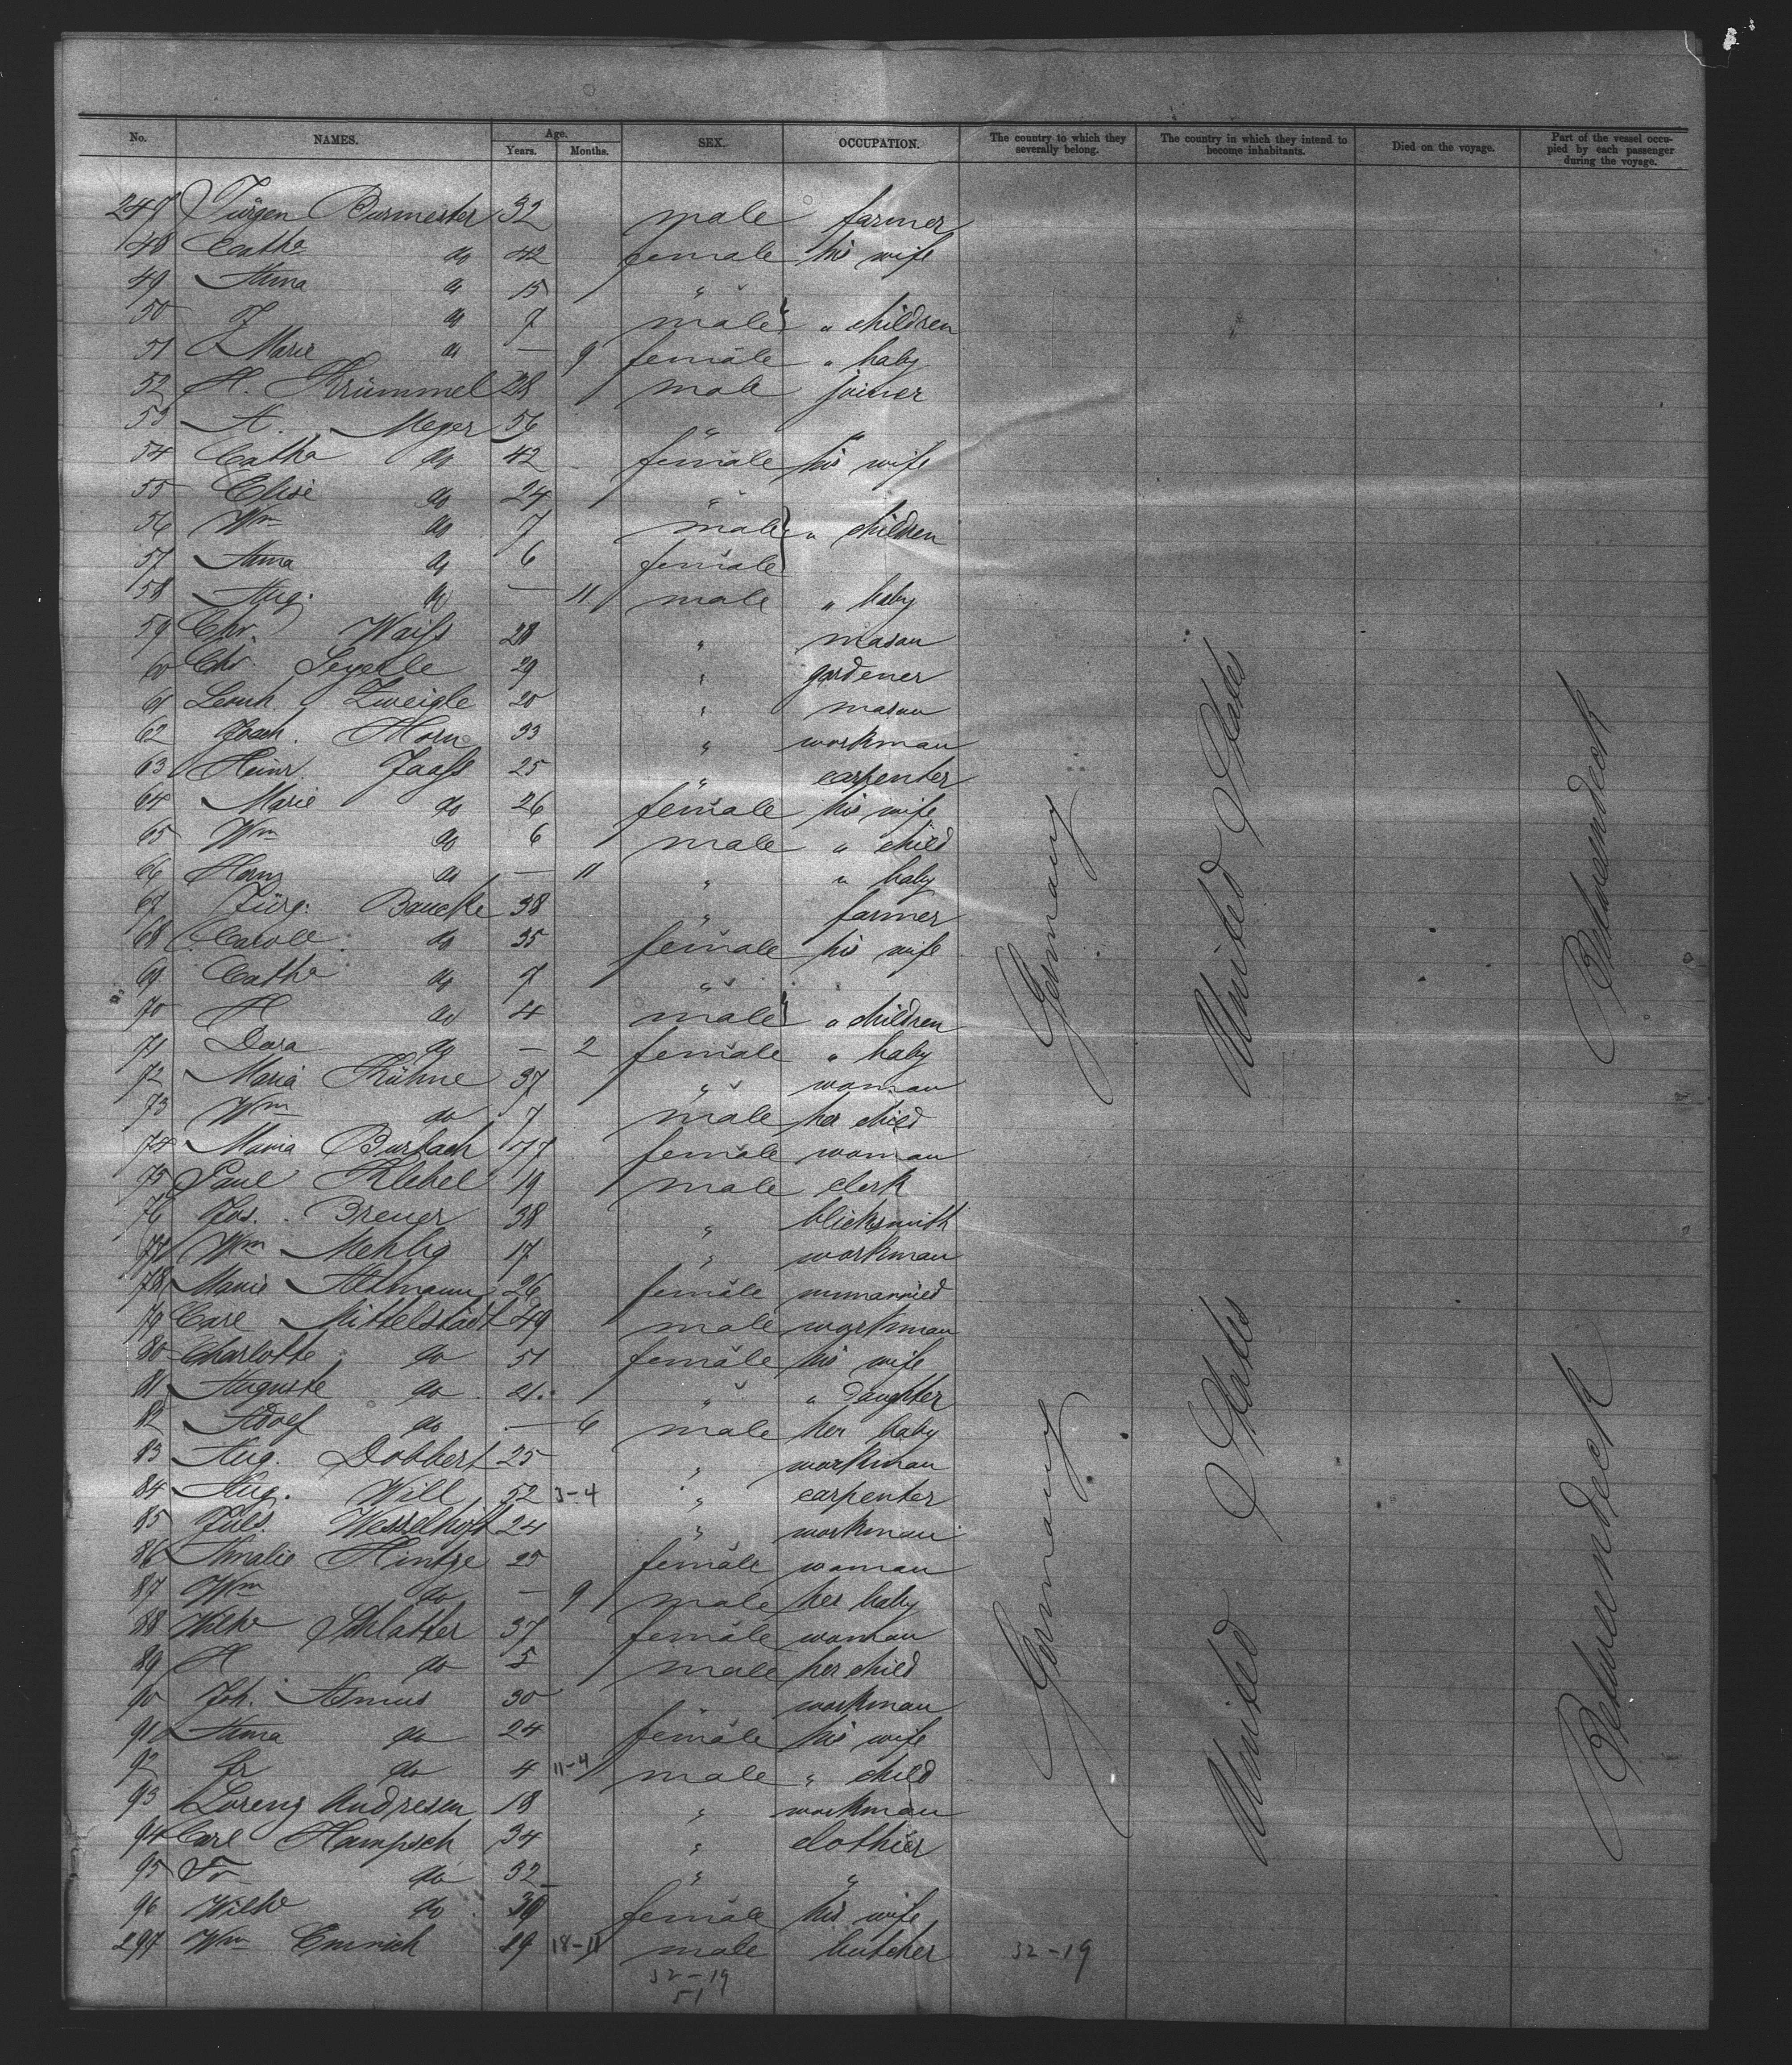 No. NAMES. Age. Years. Months. SEX. OCCUPATION. The country to which they severally belong. The country in which they intend to become inhabitants. Died on the voyage. Part of the vessel occupied by each passenger during the voyage.
247 Jürgen Burmester 32 male farmer
48 Cathe do 42 female his wife
49 Anna do 15 "
50 J do 7 male " children
51 Marie do — 9 female " baby
52 H. Krümmel 28 male joiner
53 A. Meyer 56 " "
54 Catha do 42 female his wife
55 Elise do 24 "
56 Wm do 7 male " children
57 Anna do 6 female
58 Aug. do — 11 male " baby
59 Chr. Waiss 28 " mason
60 Chr. Seyerle 29 " gardener
61 Leonh. Zweigle 20 " mason
62 Joach. Horn 33 " workman
63 Heinr. Jaass 25 " carpenter
64 Marie do 26 female his wife
65 Wm do 6 male " child
66 Hans do — 11 " " baby
67 Jürg. Baucke 38 " farmer
68 Caroll do 35 female his wife
69 Cathe do 7 "
70 H do 4 male " children
71 Dora do — 2 female " baby
72 Maria Kühne 37 " woman
73 Wm do 7 male her child
74 Maria Burbach 77 female woman
75 Paul Klebel 19 male clerk
76 Jos. Breuer 38 " blicksmith
77 Wm Mehlig 17 " workman
78 Marie Altmann 26 female unmarried
79 Carl Mittelstädt 49 male workman
80 Charlotte do 51 female his wife
81 Auguste do 21 " " daughter
82 Adolf do — 6 male her baby
83 Aug. Dobbert 25 " workman
84 Aug. Will 52 3-4 " carpenter
85 Juls. Wesselhöft 24 " workman
86 Amalie Hintze 25 female woman
87 Wm do — 9 male her baby
88 Wilhe Schlatter 37 female woman
89 H do 5 male her child
90 Joh. Asmus 30 workman
91 Anna do 24 female his wife
92 Fr do 4 11-4 male " child
93 Lorenz Andresen 18 " workman
94 Carl Hampsch 34 " clothier
95 Fr do 32 " "
96 Wilhe do 30 female his wife
297 Wm Emrich 29 18-11 male butcher 32-19
32-19
51
Germany United States Betweendeck
Germany United States Betweendeck